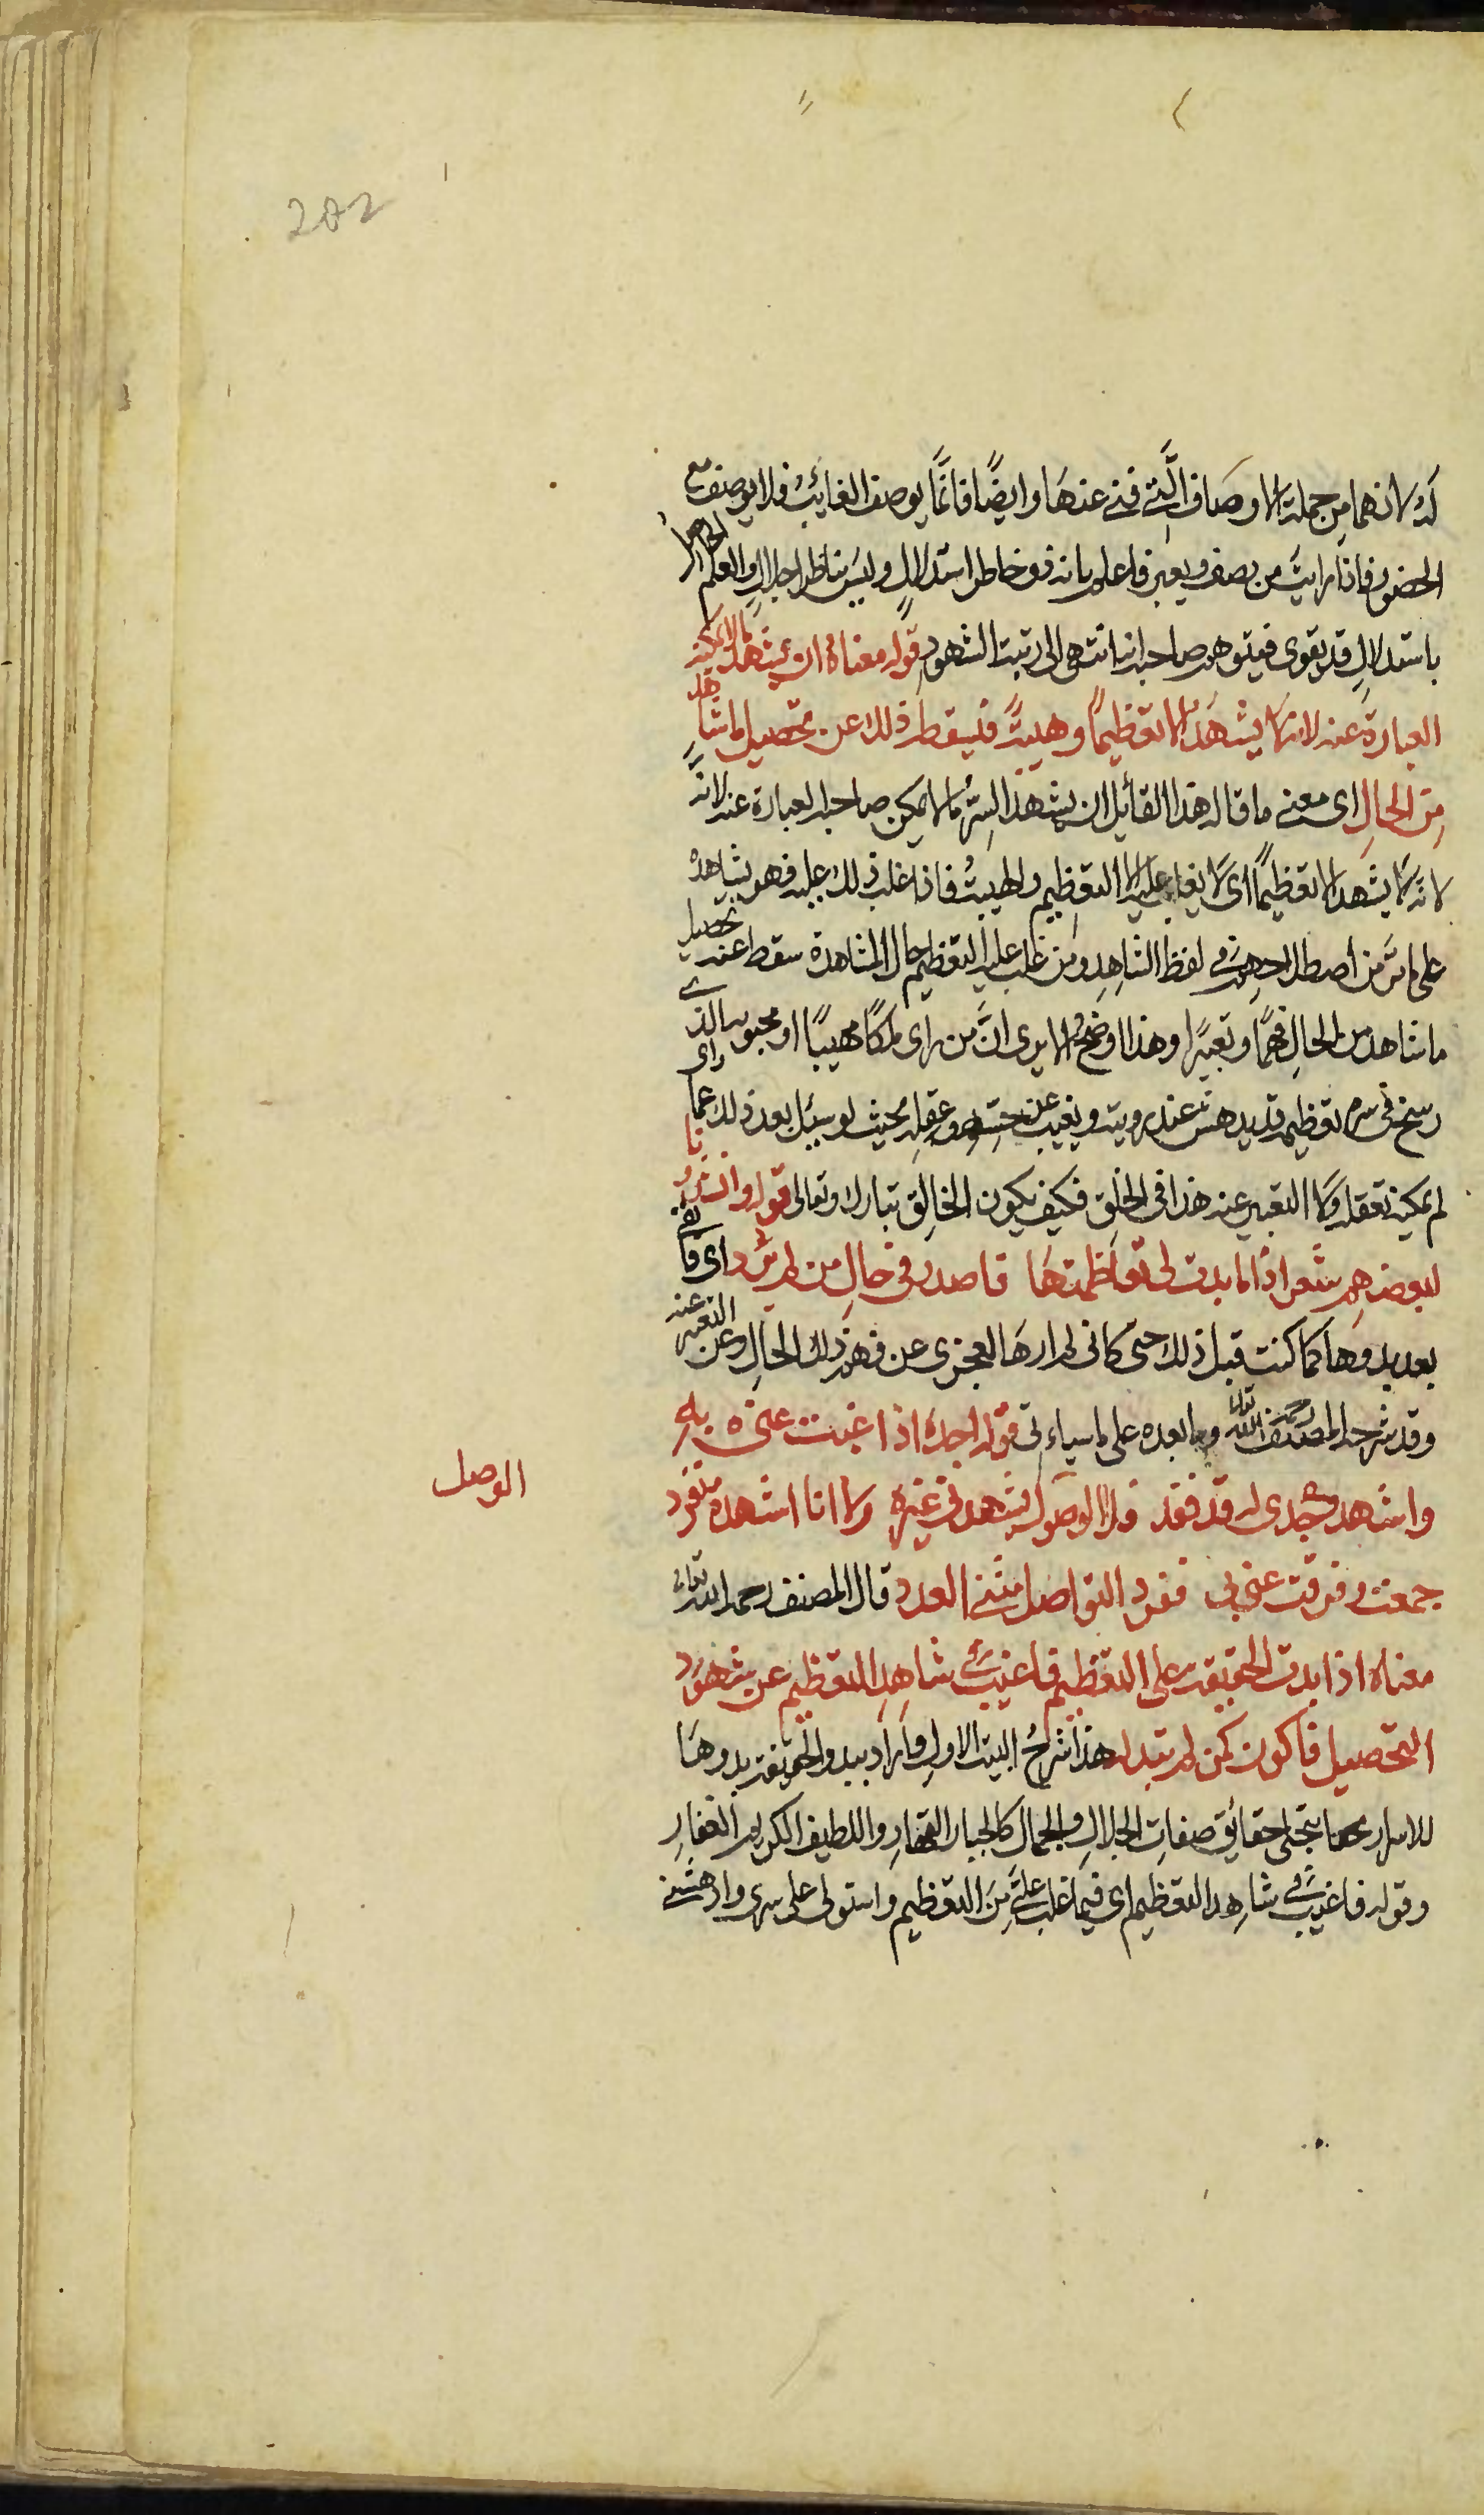 202
له لانهما من جملة الاوصاف الَّتى فنى عنها وايضًا فانَّما يوصف الغايب فلا يوصف مع
الحضور فاذا رايت من يصف ويعبر فاعلم بانه ذو خاطر استدلالٍ وليس بناظر اجلالٍ والعلم الحاصل
باستدلالٍ قد يقوى فيتوهم صاحبه انه انتهى الى رتبت الشهود قوله معناهُ ان يشهد ما لا يمكنه
العبارة عنه لانه لا يشهد الا تعظيمًا وهيبتً فيسقط ذلك عن تحصيل ما شاهد
مِن الحالِ اى معنى ما قاله هذا القائل ان يشهد السِرُّ ما لا يمكن صاحبه العبارة عنه لانَّه
لانه لا يشهد الا تعظيمًا اى لا يغلب عليه الا التعظيم والهيبتُ فاذا غلب ذلك عليه فهو يشاهده
على ما مرَّ من اصطلاحهم فى لفظ الشاهدِ ومن غلب عليه التعظيم حال المشاهدة سقط عنه تحصيل
ما شاهد من الحالِ فهمًا وتعبيرًا وهذا اوضح الا يرى انَّ من راى ملكًا مهيبًا او محبوبه الذى
رسخ فى سره تعظيمه قد يدهش عند رويته ويغيب عن حسِّه وعقلِه بحيث لو سيل بعد ذلك عما راى
لم يمكنه تعقله ولا التعبير عنه هذا فى الخلق فكيف يكون الخالِق تبارك وتعالى قوله وانشدونا
لبعضهم شعر اذا ما بدت لى تعاظمتها فاصدر فى حالِ من لم يرد اى فا
بعد بدوها كما كنت قبل ذلك حتى كانى لم ارها لعجزى عن فهم ذلك الحالِ وعن التعبير عنه
وقد شرحه المصنف رحمه الله تعالى وما بعده على ما سياءتى قوله اجده اذا غبت عنى به
واشهد وجدى له قد فقد فلا الوصول يشهدنى غيره ولا انا اشهده منفرد
الوصل
جمعت وفرقت عنى به ففرد التواصل مثنى العدد قال المصنف رحمه الله تعالى
معناه اذا بدت الحقيقة على التعظيم فاغيب فى شاهدِ التعظيم عن شهود
التحصيل فاكون كمن لم تبد له هذا شرحُ البيت الاول واراد ببدو الحقيقة بدوها
للاسرار بتجلى حقائق صفاتِ الجلالِ والجمال كالجبار القهارِ واللطيف الكريم الغفارِ
وقوله فاغيب فى شاهد التعظيم اى فيما غلب علَىَّ مِنَ التعظيم واستولى على سرى وادهشنى